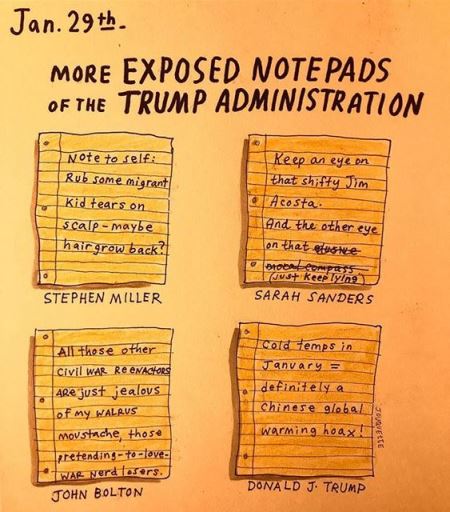 Jan. 29th.
MORE EXPOSED NOTEPADS
OF THE TRUMP ADMINISTRATION
Note to self:
Rub some migrant
Kid tears on
scalp - maybe
hair grow back?
STEPHEN MILLER
Keep an eye on
that shifty Jim
Acosta.
And the other eye
on that elusive
moral compass
(just keep lying)
SARAH SANDERS
All those other
Civil WAR REENACTORS
ARE just jealous
of my WALRUS
moustache, those
pretending-to-love-
WAR nerd losers.
JOHN BOLTON
Cold temps in
January =
definitely a
Chinese global
warming hoax!
DONALD J. TRUMP